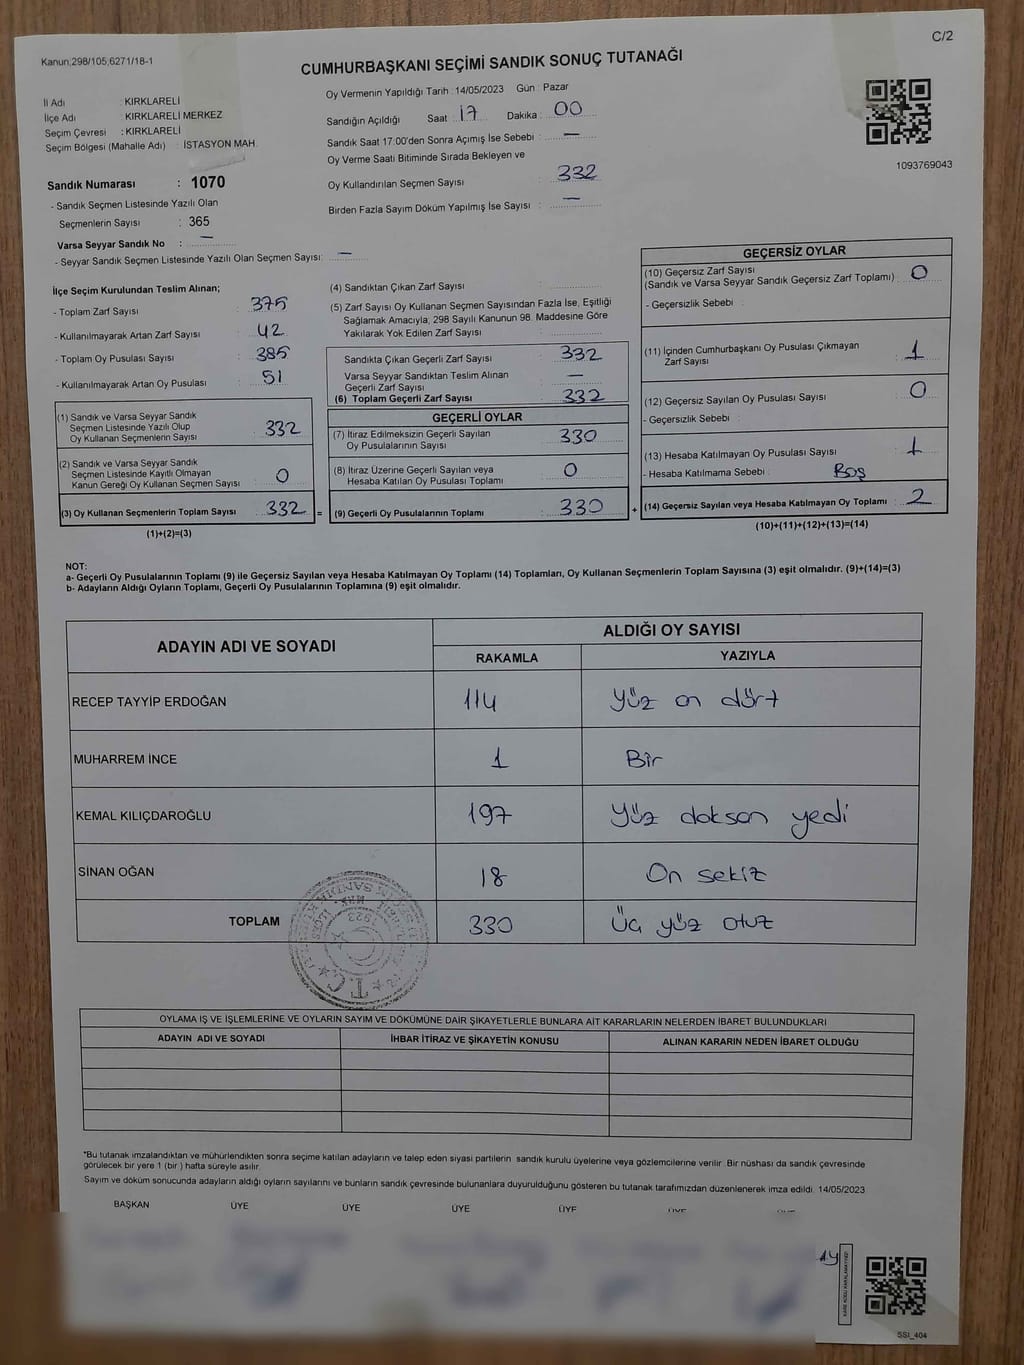 C/2
Kanun;298/105;6271/18-1
CUMHURBAŞKANI SEÇİMİ SANDIK SONUÇ TUTANAĞI
İl Adı : KIRKLARELİ
İlçe Adı : KIRKLARELİ MERKEZ
Seçim Çevresi : KIRKLARELİ
Seçim Bölgesi (Mahalle Adı) : İSTASYON MAH.
Sandık Numarası : 1070
- Sandık Seçmen Listesinde Yazılı Olan
Seçmenlerin Sayısı : 365
Varsa Seyyar Sandık No : —
- Seyyar Sandık Seçmen Listesinde Yazılı Olan Seçmen Sayısı: —
Oy Vermenin Yapıldığı Tarih : 14/05/2023 Gün : Pazar
Sandığın Açıldığı Saat : 17 Dakika : 00
Sandık Saat 17:00'den Sonra Açımış İse Sebebi : —
Oy Verme Saati Bitiminde Sırada Bekleyen ve
Oy Kullandırılan Seçmen Sayısı : 332
Birden Fazla Sayım Döküm Yapılmış İse Sayısı : —
1093769043
İlçe Seçim Kurulundan Teslim Alınan;
- Toplam Zarf Sayısı : 375
- Kullanılmayarak Artan Zarf Sayısı : 42
- Toplam Oy Pusulası Sayısı : 385
- Kullanılmayarak Artan Oy Pusulası : 51
(1) Sandık ve Varsa Seyyar Sandık
Seçmen Listesinde Yazılı Olup
Oy Kullanan Seçmenlerin Sayısı : 332
(2) Sandık ve Varsa Seyyar Sandık
Seçmen Listesinde Kayıtlı Olmayan
Kanun Gereği Oy Kullanan Seçmen Sayısı : 0
(3) Oy Kullanan Seçmenlerin Toplam Sayısı : 332 =
(1)+(2)=(3)
(4) Sandıktan Çıkan Zarf Sayısı :
(5) Zarf Sayısı Oy Kullanan Seçmen Sayısından Fazla İse, Eşitliği
Sağlamak Amacıyla; 298 Sayılı Kanunun 98. Maddesine Göre
Yakılarak Yok Edilen Zarf Sayısı :
Sandıkta Çıkan Geçerli Zarf Sayısı : 332
Varsa Seyyar Sandıktan Teslim Alınan
Geçerli Zarf Sayısı : —
(6) Toplam Geçerli Zarf Sayısı : 332
GEÇERLİ OYLAR
(7) İtiraz Edilmeksizin Geçerli Sayılan
Oy Pusulalarının Sayısı : 330
(8) İtiraz Üzerine Geçerli Sayılan veya
Hesaba Katılan Oy Pusulası Toplamı : 0
(9) Geçerli Oy Pusulalarının Toplamı : 330 +
GEÇERSİZ OYLAR
(10) Geçersiz Zarf Sayısı
(Sandık ve Varsa Seyyar Sandık Geçersiz Zarf Toplamı) : 0
- Geçersizlik Sebebi :
(11) İçinden Cumhurbaşkanı Oy Pusulası Çıkmayan
Zarf Sayısı : 1
(12) Geçersiz Sayılan Oy Pusulası Sayısı : 0
- Geçersizlik Sebebi :
(13) Hesaba Katılmayan Oy Pusulası Sayısı : 1
- Hesaba Katılmama Sebebi : Boş
(14) Geçersiz Sayılan veya Hesaba Katılmayan Oy Toplamı : 2
(10)+(11)+(12)+(13)=(14)
NOT:
a- Geçerli Oy Pusulalarının Toplamı (9) ile Geçersiz Sayılan veya Hesaba Katılmayan Oy Toplamı (14) Toplamları, Oy Kullanan Seçmenlerin Toplam Sayısına (3) eşit olmalıdır. (9)+(14)=(3)
b- Adayların Aldığı Oyların Toplamı, Geçerli Oy Pusulalarının Toplamına (9) eşit olmalıdır.
ADAYIN ADI VE SOYADI ALDIĞI OY SAYISI
RAKAMLA YAZIYLA
RECEP TAYYİP ERDOĞAN 114 Yüz on dört
MUHARREM İNCE 1 Bir
KEMAL KILIÇDAROĞLU 197 Yüz doksan yedi
SİNAN OĞAN 18 On sekiz
TOPLAM 330 Üç yüz otuz
OYLAMA İŞ VE İŞLEMLERİNE VE OYLARIN SAYIM VE DÖKÜMÜNE DAİR ŞİKAYETLERLE BUNLARA AİT KARARLARIN NELERDEN İBARET BULUNDUKLARI
ADAYIN ADI VE SOYADI İHBAR İTİRAZ VE ŞİKAYETİN KONUSU ALINAN KARARIN NEDEN İBARET OLDUĞU
*Bu tutanak imzalandıktan ve mühürlendikten sonra seçime katılan adayların ve talep eden siyasi partilerin sandık kurulu üyelerine veya gözlemcilerine verilir. Bir nüshası da sandık çevresinde
görülecek bir yere 1 (bir) hafta süreyle asılır.
Sayım ve döküm sonucunda adayların aldığı oyların sayılarını ve bunların sandık çevresinde bulunanlara duyurulduğunu gösteren bu tutanak tarafımızdan düzenlenerek imza edildi. 14/05/2023
BAŞKAN ÜYE ÜYE ÜYE ÜYE
SSI_404